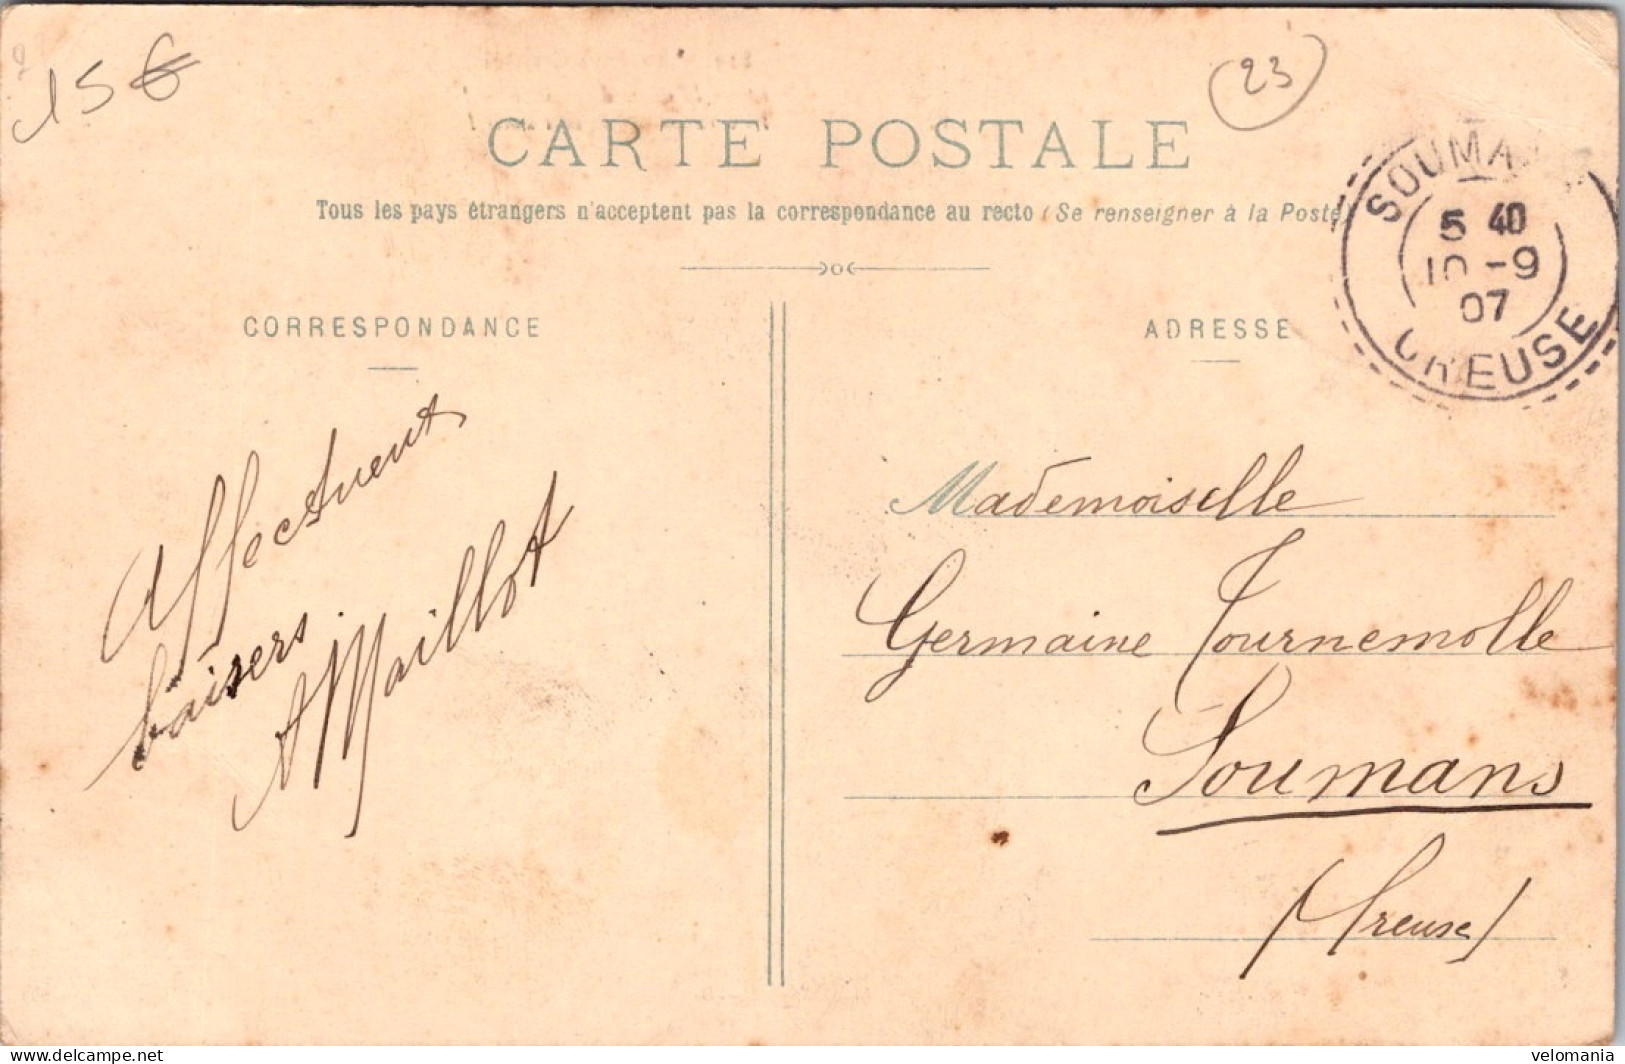 15€
23
CARTE POSTALE
Tous les pays étrangers n'acceptent pas la correspondance au recto (Se renseigner à la Poste)
SOUMA
5 40
10 -9
07
CREUSE
CORRESPONDANCE
ADRESSE
Affectueux
baisers.
AMaillot
Mademoiselle
Germaine Tournemolle
Soumans
(Creuse)
Delcampe.net
velomania